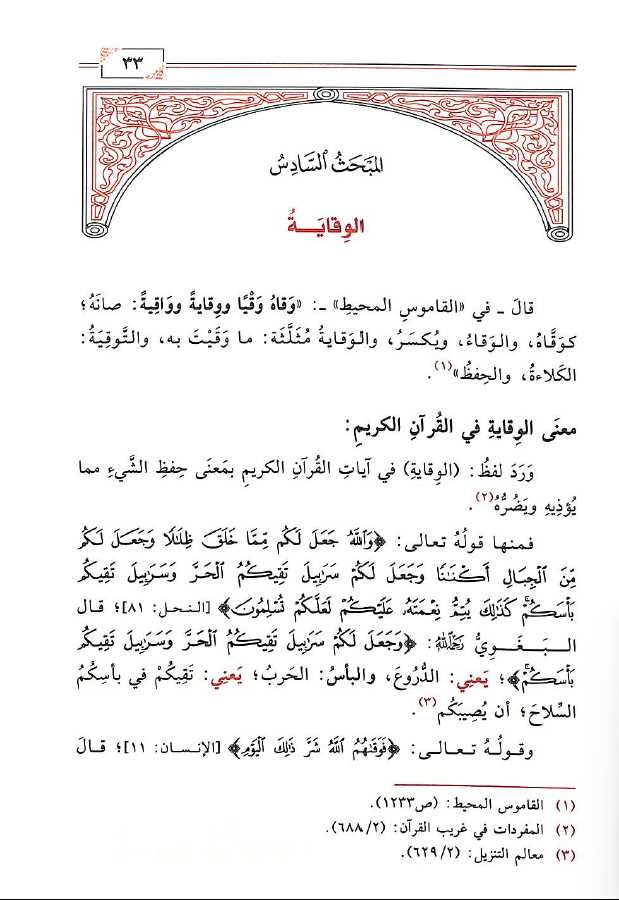 ٣٣
المَبْحَثُ السَّادِسُ
الوِقايَـــةُ
قالَ ـ في «القاموسِ المحيطِ» ـ: «وَقاهُ وَقْيًا ووِقايةً وواقِيةً: صانَهُ؛
كوَقَّاهُ، والوَقاءُ، ويُكسَرُ، والوَقايةُ مُثَلَّثة: ما وَقَيْتَ به، والتَّوقِيَةُ:
الكَلاءةُ، والحِفظُ»(١).
معنَى الوِقايةِ في القُرآنِ الكريمِ:
وَرَدَ لفظُ: (الوِقايةِ) في آياتِ القُرآنِ الكريمِ بمَعنَى حِفظِ الشَّيءِ مما
يُؤذِيهِ ويَضُرُّهُ(٢).
فمنها قولُهُ تعالى: ﴿وَٱللَّهُ جَعَلَ لَكُم مِّمَّا خَلَقَ ظِلَٰلًا وَجَعَلَ لَكُم
مِّنَ ٱلْجِبَالِ أَكْنَٰنًا وَجَعَلَ لَكُمْ سَرَٰبِيلَ تَقِيكُمُ ٱلْحَرَّ وَسَرَٰبِيلَ تَقِيكُم
بَأْسَكُمْ ۚ كَذَٰلِكَ يُتِمُّ نِعْمَتَهُۥ عَلَيْكُمْ لَعَلَّكُمْ تُسْلِمُونَ﴾ [النحل: ٨١]؛ قال
البَـغَـوِيُّ رَحِمَهُ اللهُ: ﴿وَجَعَلَ لَكُمْ سَرَٰبِيلَ تَقِيكُمُ ٱلْحَرَّ وَسَرَٰبِيلَ تَقِيكُم
بَأْسَكُمْ ۚ﴾؛ يَعنِي: الدُّروعَ، والبأسُ: الحَربُ؛ يَعنِي: تَقِيكُمْ في بأسِكُمُ
السِّلاحَ؛ أن يُصِيبَكُم(٣).
وقولُـهُ تعالى: ﴿فَوَقَىٰهُمُ ٱللَّهُ شَرَّ ذَٰلِكَ ٱلْيَوْمِ﴾ [الإنسان: ١١]؛ قالَ
(١) القاموس المحيط: (ص١٢٣٣).
(٢) المفردات في غريب القرآن: (٦٨٨/٢).
(٣) معالم التنزيل: (٦٢٩/٢).